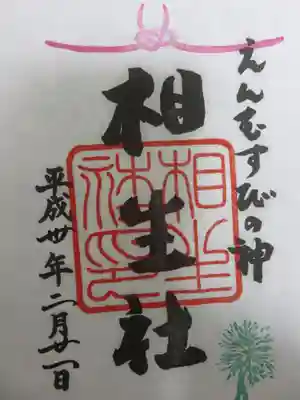 えんむすびの神
相生社
平成丗年二月廿一日